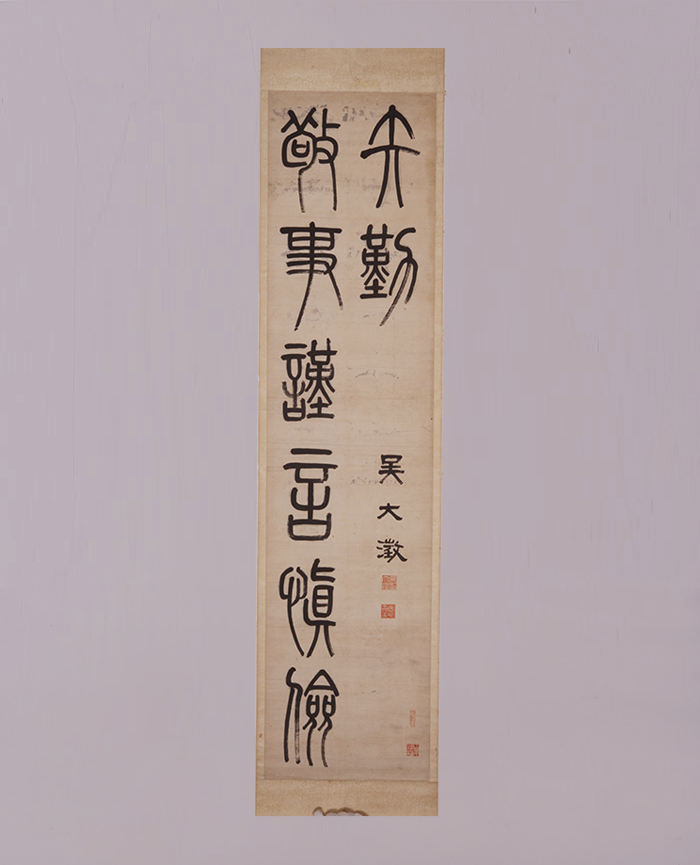 敬事謹言慎儉
勤
吳大澂